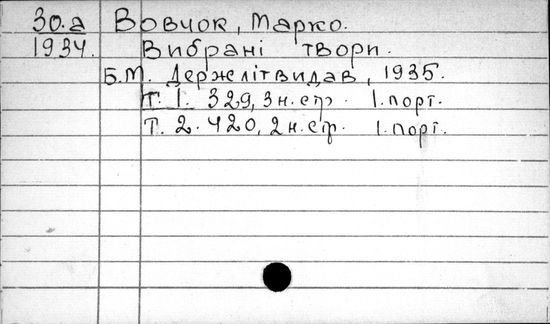 30.а Вовчок, Марко.
1934. Вибрані твори.
Б.М. Держлітвидав, 1935.
Т. 1. 329, 3 н. стр. 1. порт.
Т. 2. 420, 2 н. стр. 1. порт.